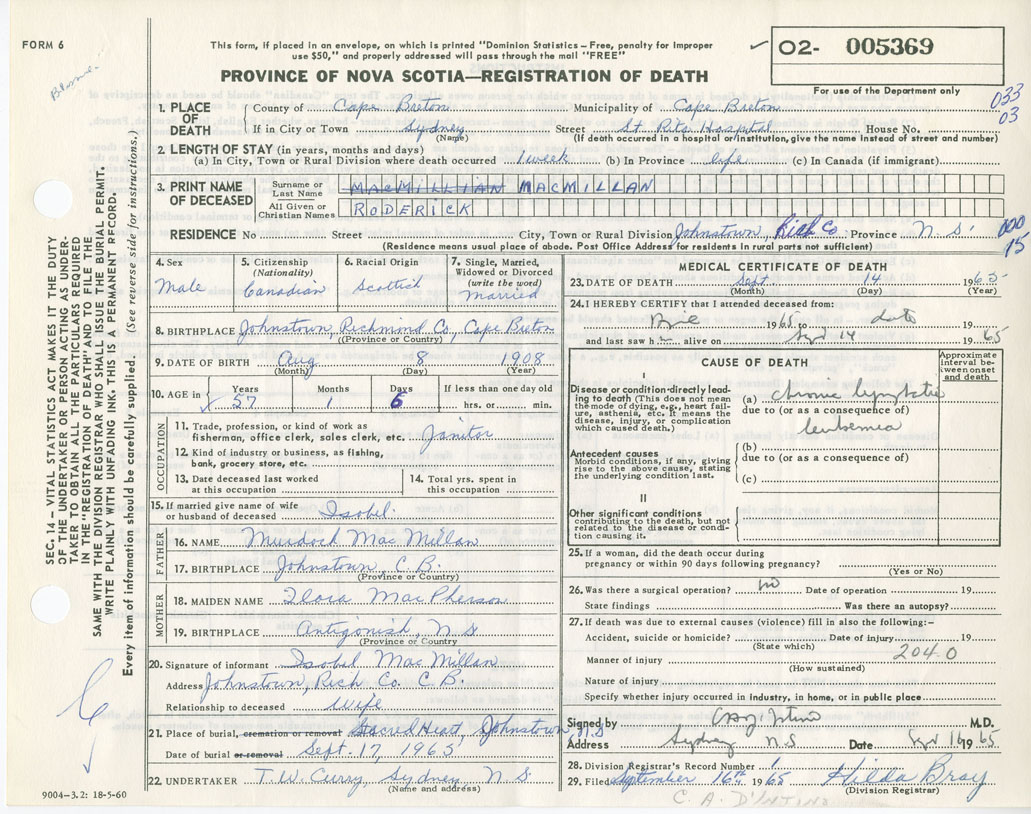 FORM 6
This form, if placed in an envelope, on which is printed "Dominion Statistics – Free, penalty for improper
use $50," and properly addressed will pass through the mail "FREE"
O2- 005369
PROVINCE OF NOVA SCOTIA—REGISTRATION OF DEATH
For use of the Department only
033
03
1. PLACE OF DEATH
County of Cape Breton Municipality of Cape Breton
If in City or Town Sydney Street St Rita Hospital House No.
(Name) (If death occurred in hospital or institution, give the name instead of street and number)
2. LENGTH OF STAY (in years, months and days)
(a) In City, Town or Rural Division where death occurred 1 week (b) In Province life (c) In Canada (if immigrant)
3. PRINT NAME OF DECEASED
Surname or Last Name MACMILLIAN MACMILLAN
All Given or Christian Names RODERICK
RESIDENCE No Street City, Town or Rural Division Johnstown, Rich Co. Province N. S.
(Residence means usual place of abode. Post Office Address for residents in rural parts not sufficient)
000
15
4. Sex Male
5. Citizenship (Nationality) Canadian
6. Racial Origin Scottish
7. Single, Married, Widowed or Divorced (write the word) Married
8. BIRTHPLACE Johnstown, Richmond Co, Cape Breton
(Province or Country)
9. DATE OF BIRTH Aug 8 1908
(Month) (Day) (Year)
10. AGE in Years 57 Months 1 Days 6 If less than one day old hrs. or min.
OCCUPATION
11. Trade, profession, or kind of work as
fisherman, office clerk, sales clerk, etc. Janitor
12. Kind of industry or business, as fishing,
bank, grocery store, etc.
13. Date deceased last worked at this occupation
14. Total yrs. spent in this occupation
15. If married give name of wife
or husband of deceased Isobel
FATHER
16. NAME Murdock MacMillan
17. BIRTHPLACE Johnstown, C.B.
(Province or Country)
MOTHER
18. MAIDEN NAME Flora MacPherson
19. BIRTHPLACE Antigonish, N S
(Province or Country
20. Signature of informant Isobel MacMillan
Address Johnstown, Rich Co. C.B.
Relationship to deceased Wife
21. Place of burial, cremation or removal Sacred Heart, Johnstown N S
Date of burial or removal Sept. 17, 1965
22. UNDERTAKER T. W. Curry, Sydney, N. S.
(Name and address)
9004-3.2: 18-5-60
MEDICAL CERTIFICATE OF DEATH
23. DATE OF DEATH Sept. 14 1965
(Month) (Day) (Year)
24. I HEREBY CERTIFY that I attended deceased from:
1965 to date 19
and last saw h alive on Sept 14 1965
CAUSE OF DEATH
Approximate interval be- tween onset and death
I
Disease or condition directly lead-
ing to death (This does not mean
the mode of dying, e.g., heart fail-
ure, asthenia, etc. It means the
disease, injury, or complication
which caused death.)
(a) chronic lymphatic
due to (or as a consequence of)
leukemia
Antecedent causes
Morbid conditions, if any, giving
rise to the above cause, stating
the underlying condition last.
(b)
due to (or as a consequence of)
(c)
II
Other significant conditions
contributing to the death, but not
related to the disease or condi-
tion causing it.
25. If a woman, did the death occur during
pregnancy or within 90 days following pregnancy?
(Yes or No)
26. Was there a surgical operation? no Date of operation 19
State findings Was there an autopsy?
27. If death was due to external causes (violence) fill in also the following:–
Accident, suicide or homicide? Date of injury 19
(State which)
204.0
Manner of injury
(How sustained)
Nature of injury
Specify whether injury occurred in industry, in home, or in public place
Signed by M.D.
Address Sydney N.S Date Sept 16 1965
28. Division Registrar's Record Number 1
29. Filed September 16th 1965 Hilda Bray
(Division Registrar)
C. A. D'INTINO
SEC. 14 – VITAL STATISTICS ACT MAKES IT THE DUTY
OF THE UNDERTAKER OR PERSON ACTING AS UNDER-
TAKER TO OBTAIN ALL THE PARTICULARS REQUIRED
IN THE "REGISTRATION OF DEATH" AND TO FILE THE
SAME WITH THE DIVISION REGISTRAR WHO SHALL ISSUE THE BURIAL PERMIT.
WRITE PLAINLY WITH UNFADING INK. THIS IS A PERMANENT RECORD.
Every item of information should be carefully supplied. (See reverse side for instructions.)